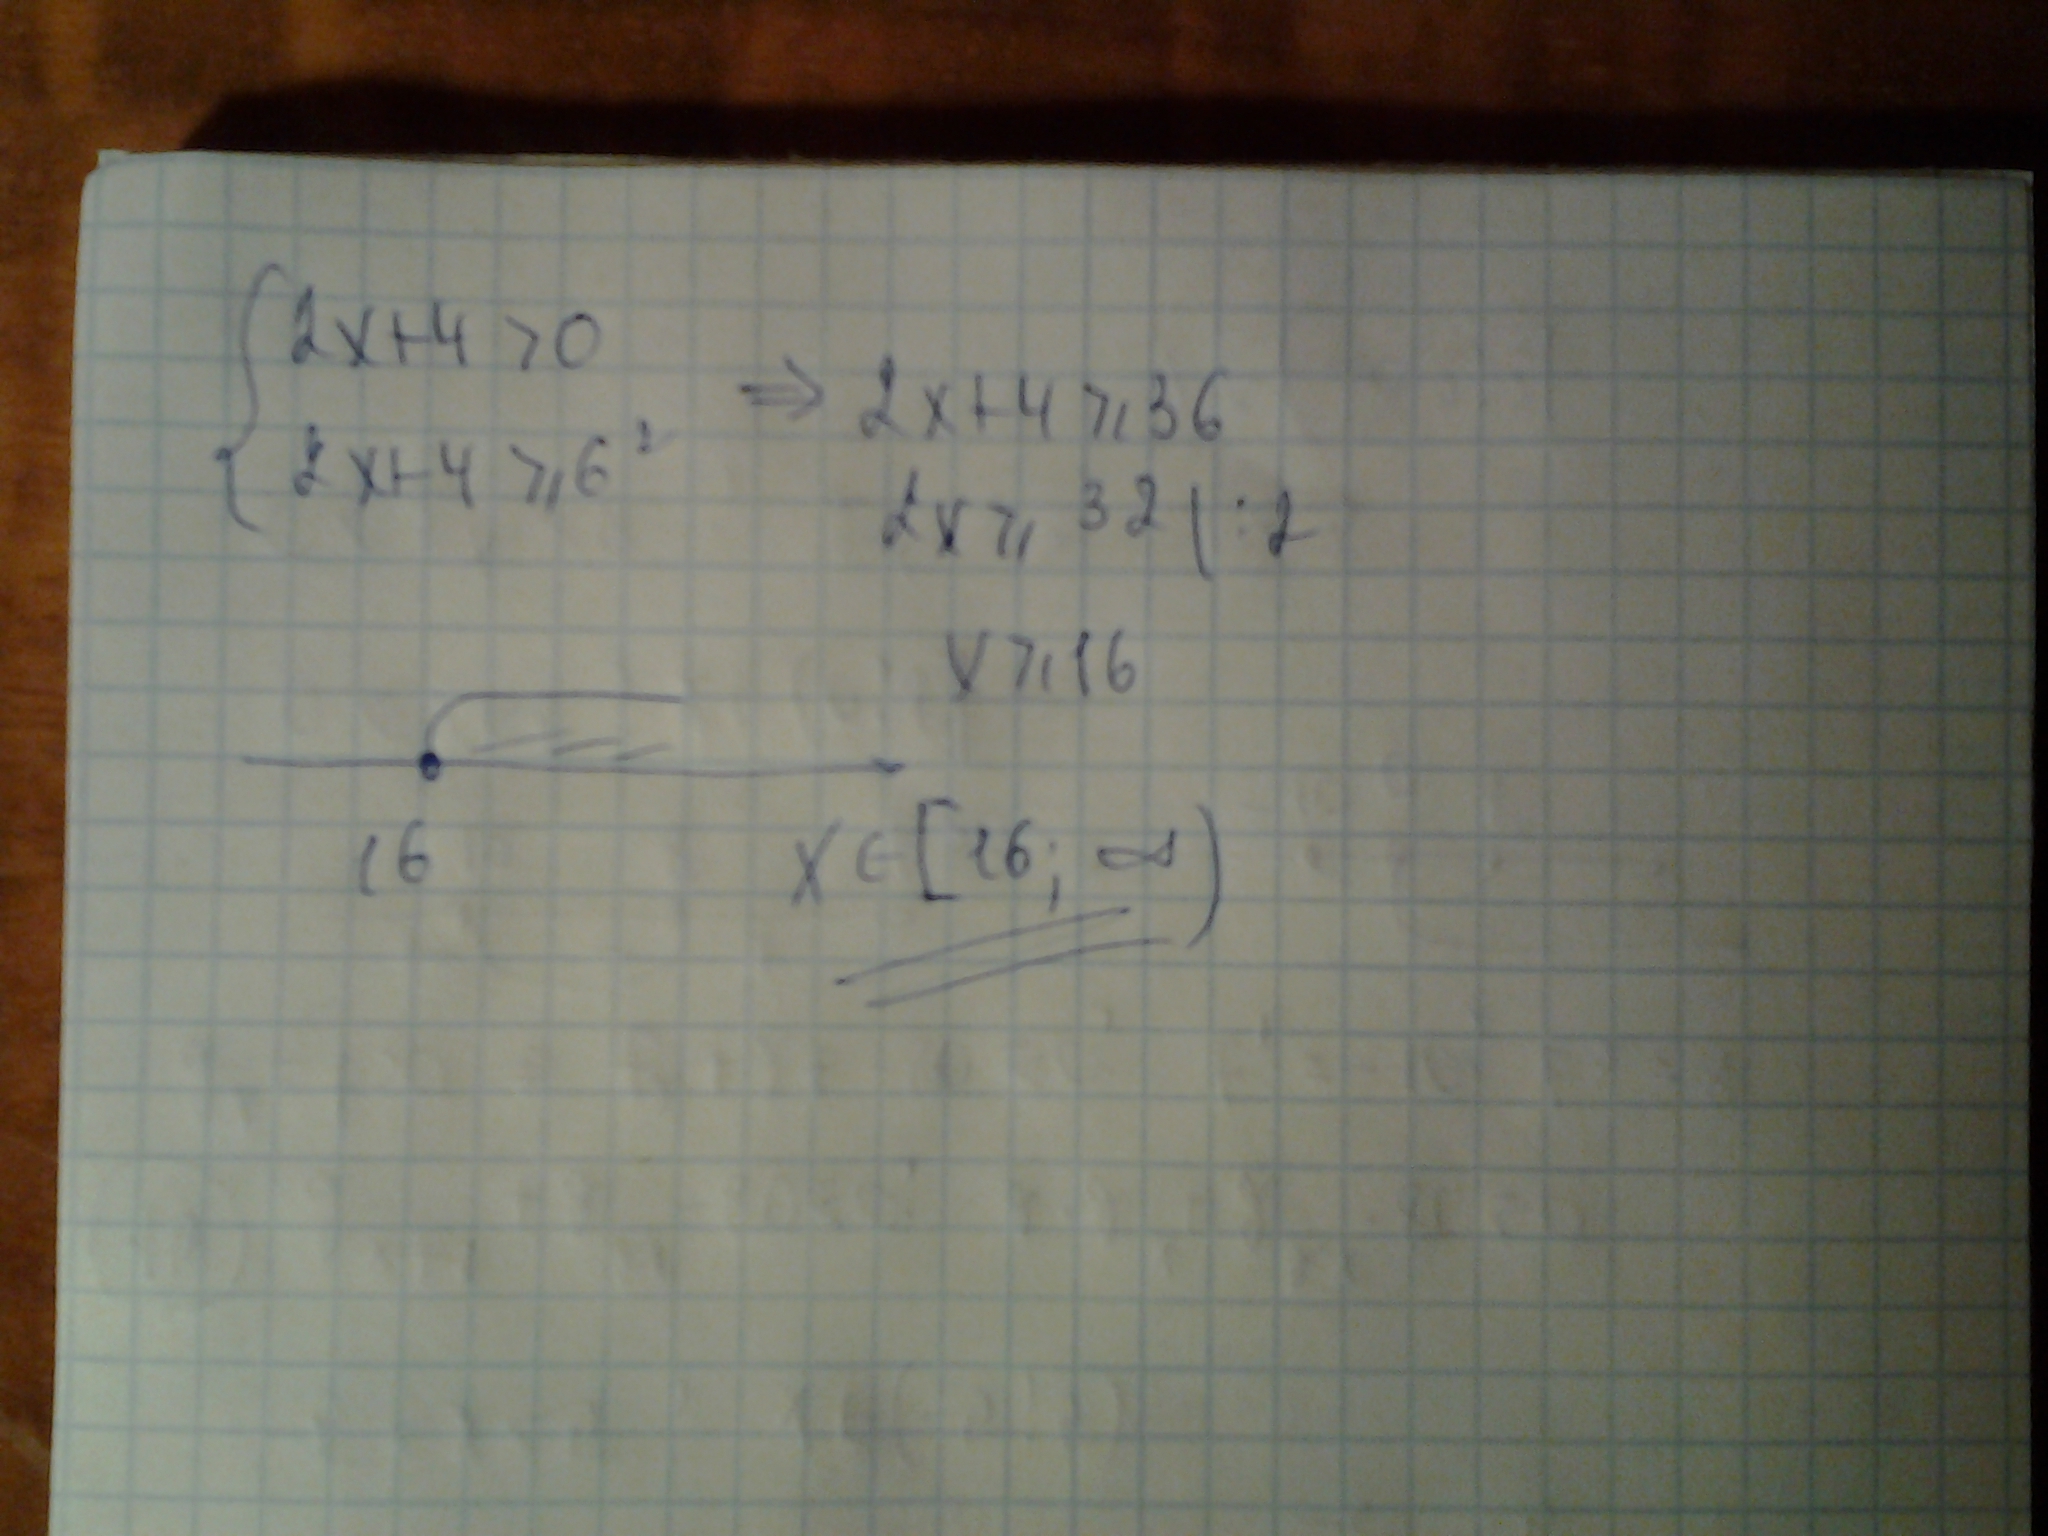 { 2x+4 >0
2x+4 ⩾ 6²
⇒ 2x+4 ⩾ 36
2x ⩾ 32 | :2
x ⩾ 16
16
x ∈ [16; ∞)